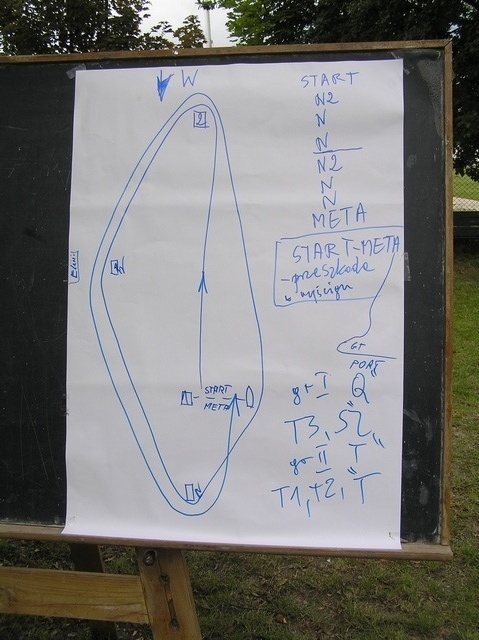 W
2
N
START
META
N
START
N2
N
N
N2
N
N
META
START-META
- przeszkoda
w wyścigu
GT
gr I "Q"
T3, S2,
gr II "T"
T1, T2, T